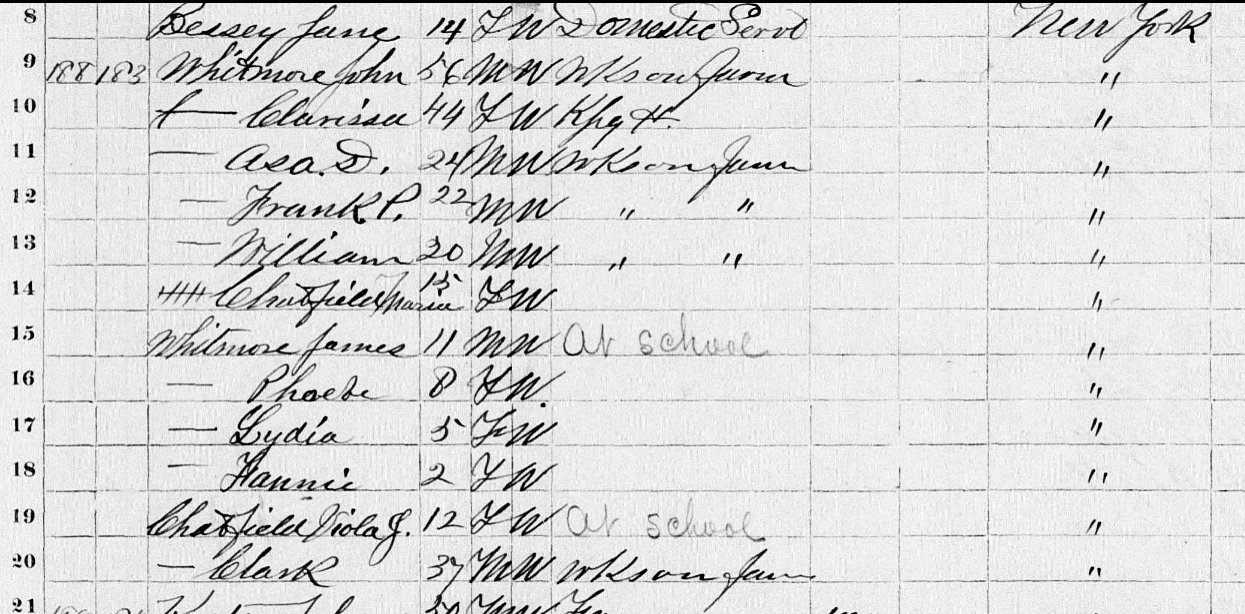 8 Bessey Jane 14 F W Domestic Servt New York
9 188 183 Whitmore John 56 M W Wks on Farm "
10 — Clarissa 44 F W Kpg H. "
11 — Asa. D. 24 M W Wks on Farm "
12 — Frank P. 22 M W " " "
13 — William 20 M W " " "
14 Chatfield Maria 15 F W "
15 Whitmore James 11 M W At school "
16 — Phoebe 8 F W "
17 — Lydia 5 F W "
18 — Fannie 2 F W "
19 Chatfield Viola J. 12 F W At school "
20 — Clark 37 M W Wks on Farm "
21